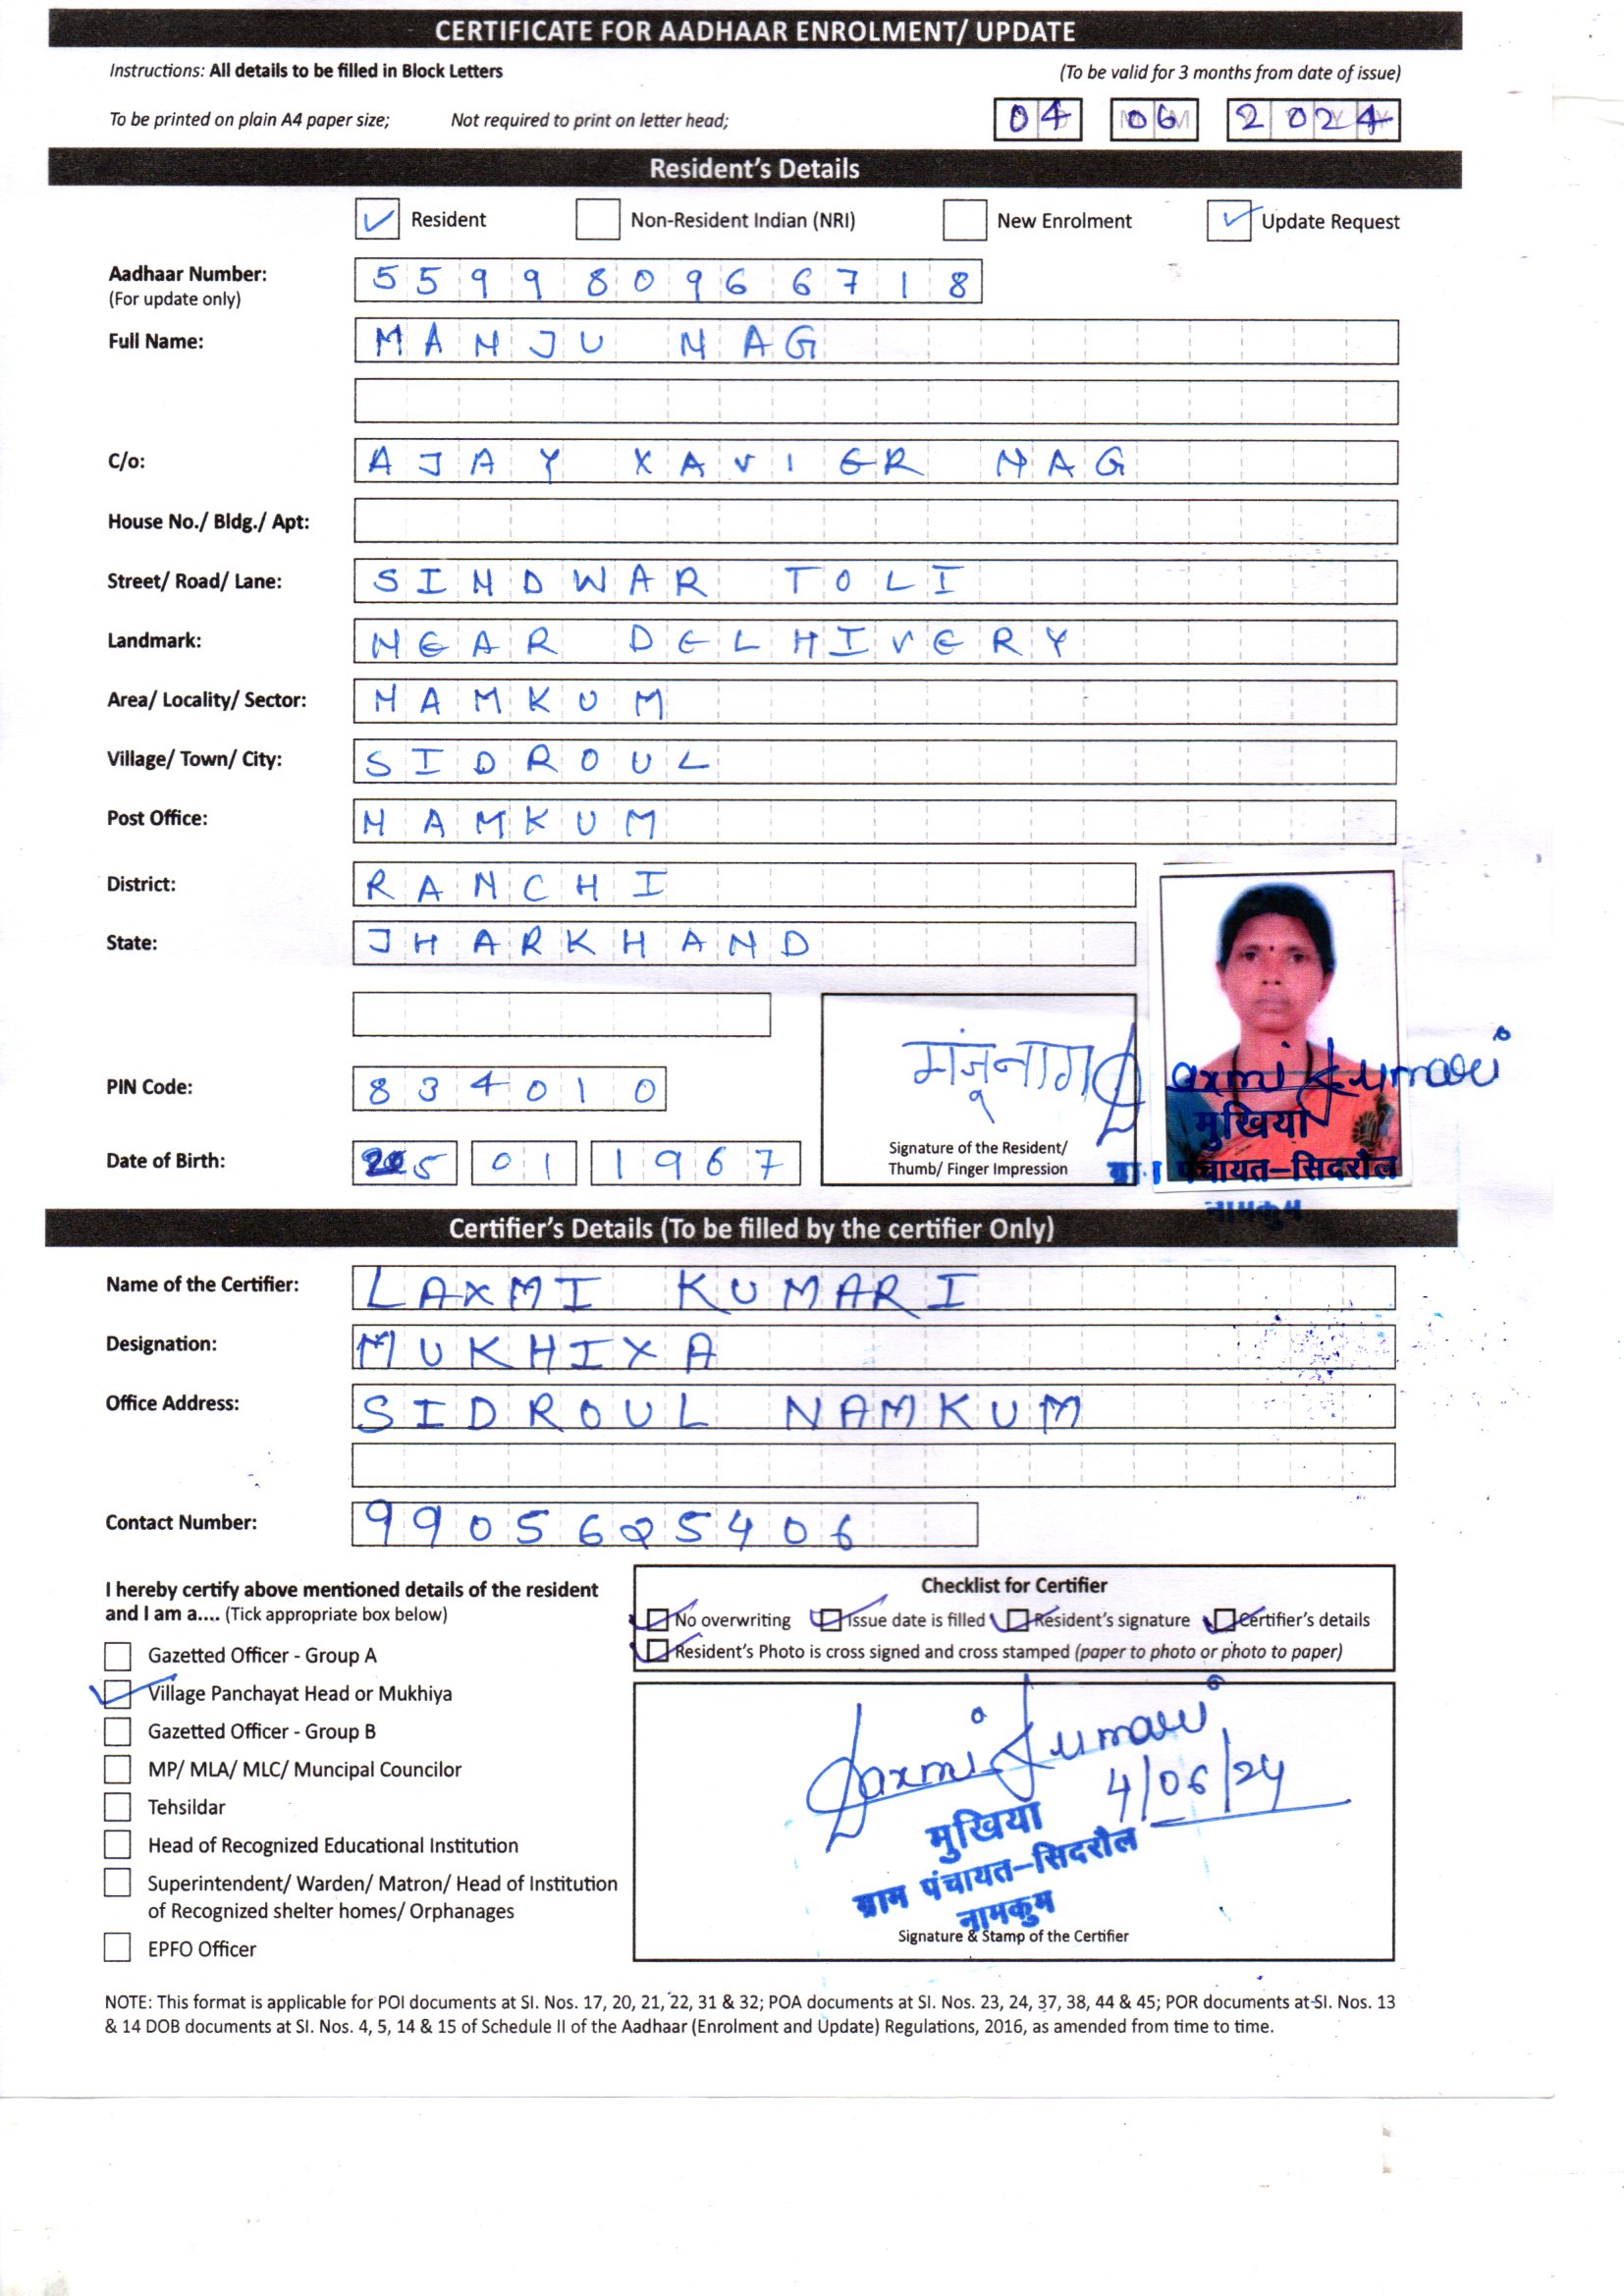 CERTIFICATE FOR AADHAAR ENROLMENT/ UPDATE
Instructions: All details to be filled in Block Letters (To be valid for 3 months from date of issue)
To be printed on plain A4 paper size; Not required to print on letter head; 04 06 2024
Resident's Details
Resident Non-Resident Indian (NRI) New Enrolment Update Request
Aadhaar Number: 559980966718
(For update only)
Full Name: MANJU NAG
C/o: AJAY XAVIER NAG
House No./ Bldg./ Apt:
Street/ Road/ Lane: SINDWAR TOLI
Landmark: NEAR DELHIVERY
Area/ Locality/ Sector: NAMKUM
Village/ Town/ City: SIDROUL
Post Office: NAMKUM
District: RANCHI
State: JHARKHAND
PIN Code: 834010
मंजू नाग
Laxmi Kumari
मुखिया
ग्रा. पंचायत-सिदरौल
नामकुम
Date of Birth: 01 1967
Signature of the Resident/
Thumb/ Finger Impression
Certifier's Details (To be filled by the certifier Only)
Name of the Certifier: LAXMI KUMARI
Designation: MUKHIYA
Office Address: SIDROUL NAMKUM
Contact Number: 9905625406
I hereby certify above mentioned details of the resident
and I am a.... (Tick appropriate box below)
Gazetted Officer - Group A
Village Panchayat Head or Mukhiya
Gazetted Officer - Group B
MP/ MLA/ MLC/ Muncipal Councilor
Tehsildar
Head of Recognized Educational Institution
Superintendent/ Warden/ Matron/ Head of Institution
of Recognized shelter homes/ Orphanages
EPFO Officer
Checklist for Certifier
No overwriting Issue date is filled Resident's signature Certifier's details
Resident's Photo is cross signed and cross stamped (paper to photo or photo to paper)
Laxmi Kumari
4/06/24
मुखिया
ग्राम पंचायत-सिदरौल
नामकुम
Signature & Stamp of the Certifier
NOTE: This format is applicable for POI documents at SI. Nos. 17, 20, 21, 22, 31 & 32; POA documents at SI. Nos. 23, 24, 37, 38, 44 & 45; POR documents at SI. Nos. 13
& 14 DOB documents at SI. Nos. 4, 5, 14 & 15 of Schedule II of the Aadhaar (Enrolment and Update) Regulations, 2016, as amended from time to time.